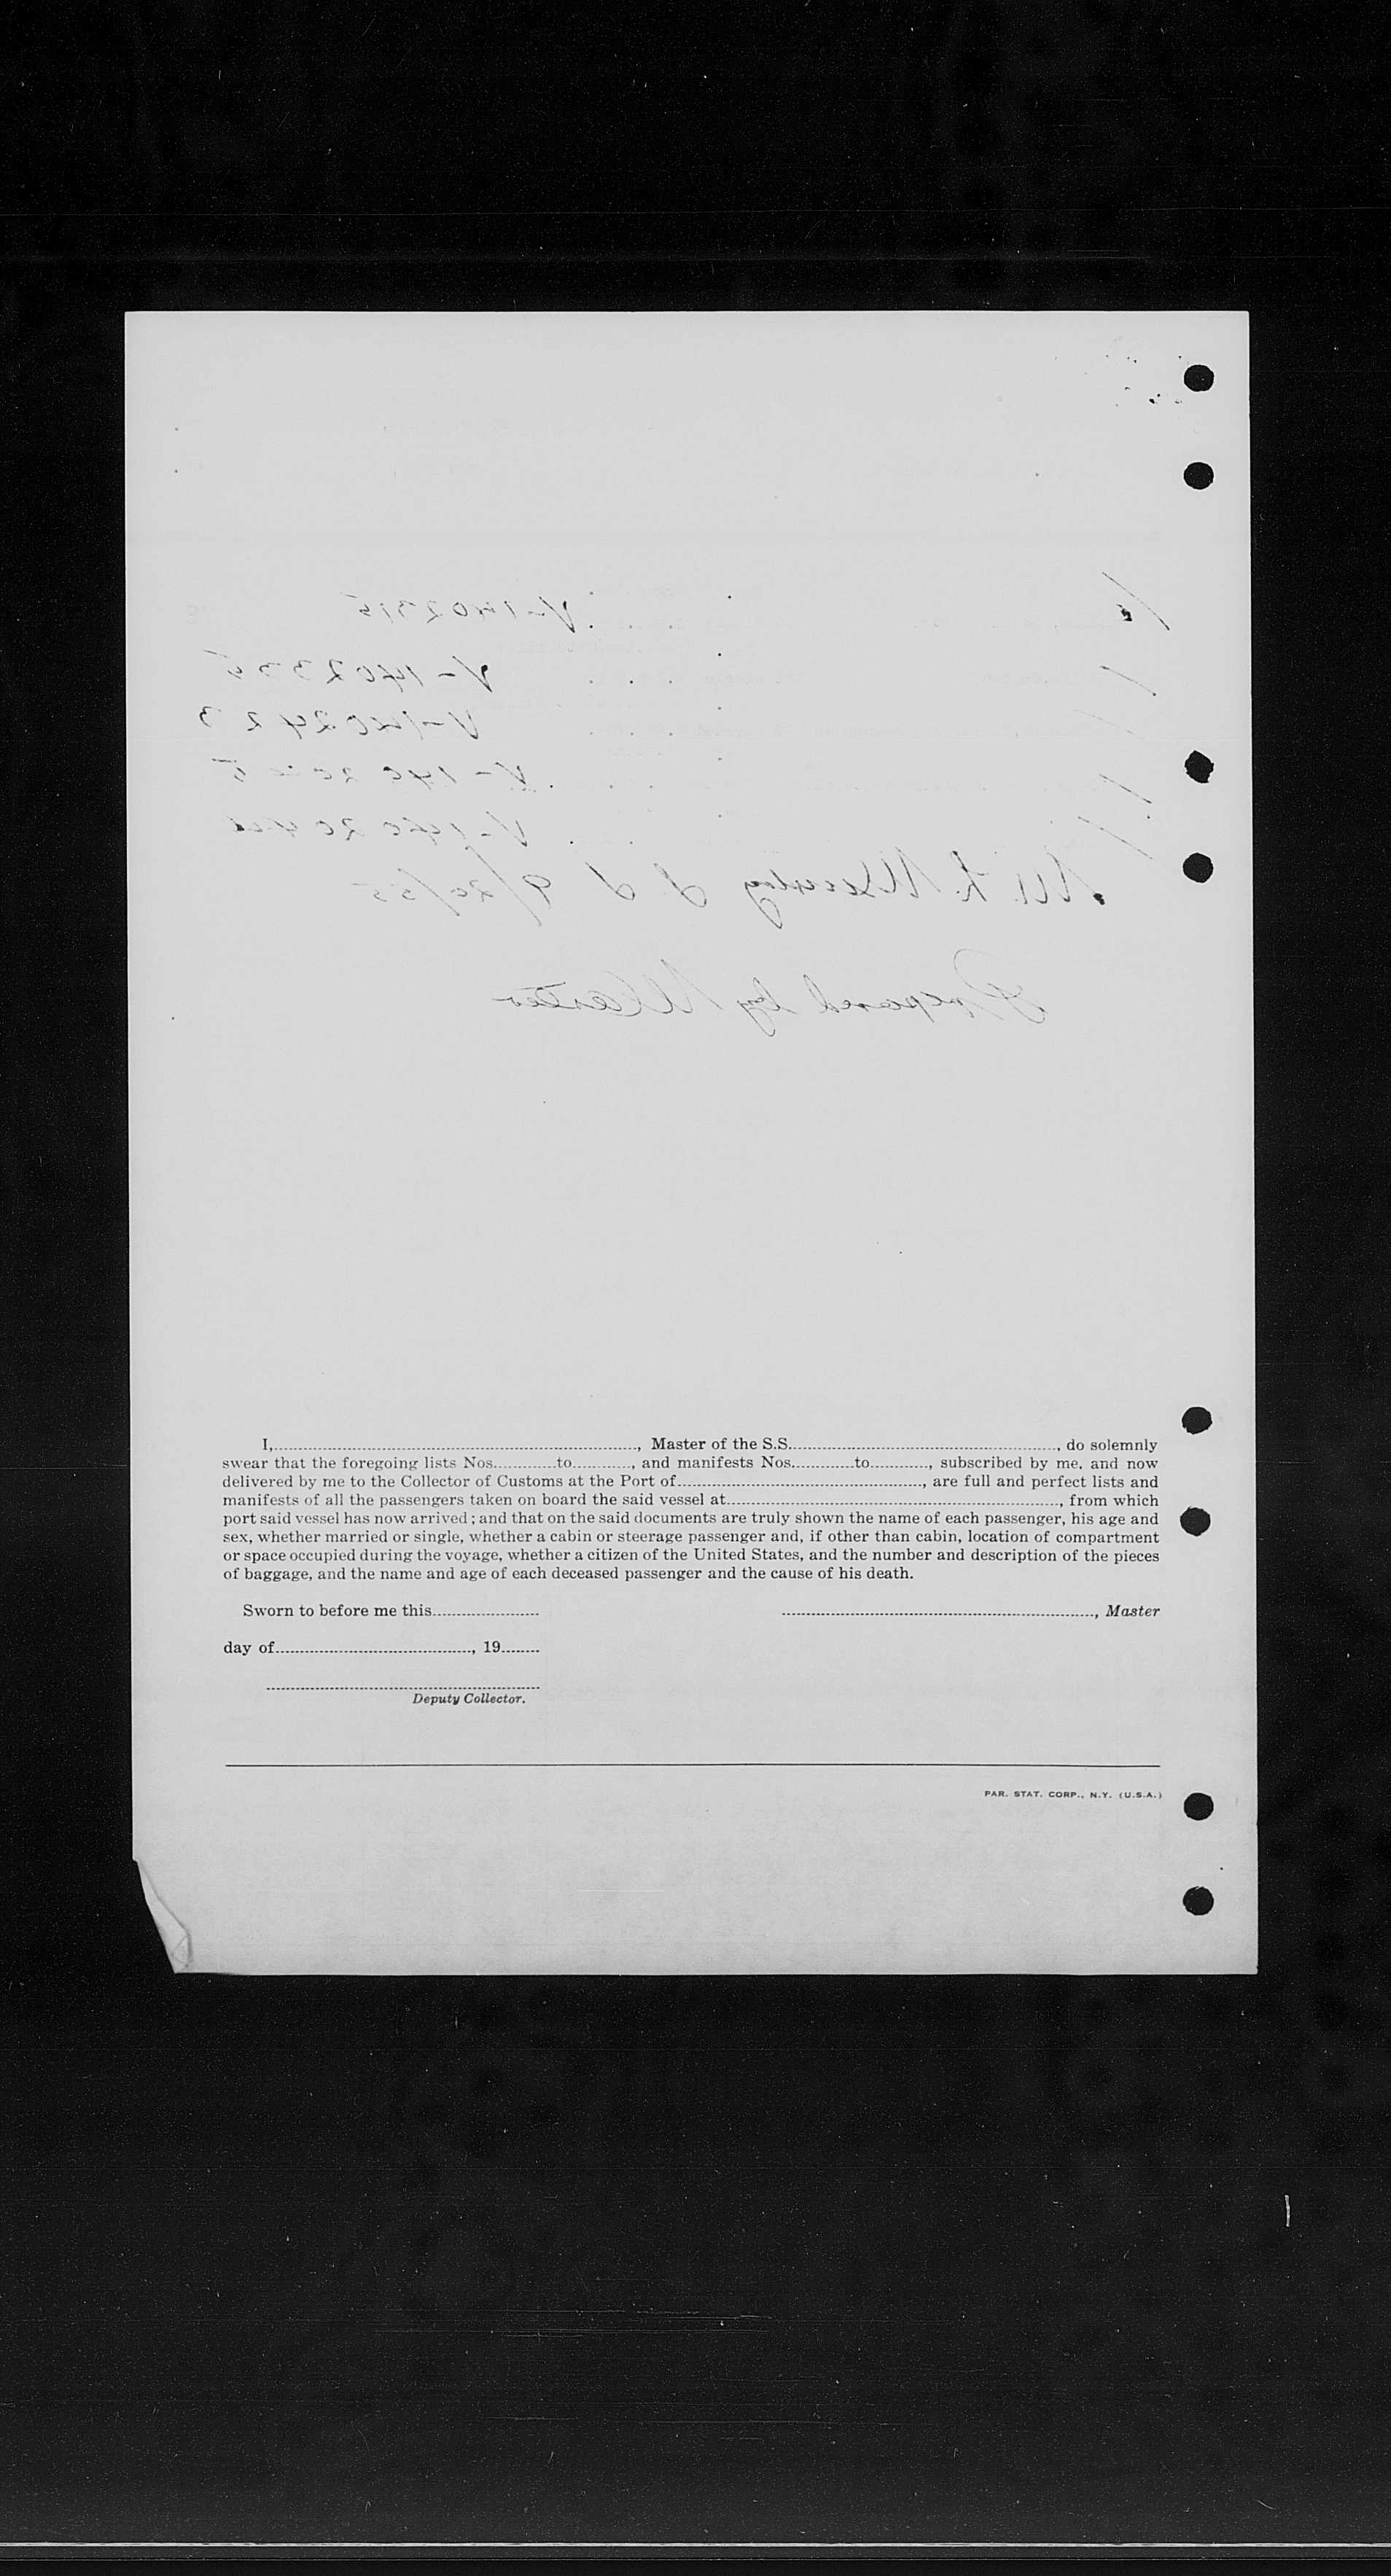 V-1402315
V-1402335
V-1402423
V-14020 5
V-140204
M. L. I. S 9/20/55
Prepared by Master
I,, Master of the S.S., do solemnly
swear that the foregoing lists Nos. to, and manifests Nos. to, subscribed by me, and now
delivered by me to the Collector of Customs at the Port of, are full and perfect lists and
manifests of all the passengers taken on board the said vessel at, from which
port said vessel has now arrived; and that on the said documents are truly shown the name of each passenger, his age and
sex, whether married or single, whether a cabin or steerage passenger and, if other than cabin, location of compartment
or space occupied during the voyage, whether a citizen of the United States, and the number and description of the pieces
of baggage, and the name and age of each deceased passenger and the cause of his death.
Sworn to before me this
, Master
day of, 19
Deputy Collector.
PAR. STAT. CORP., N.Y. (U.S.A.)